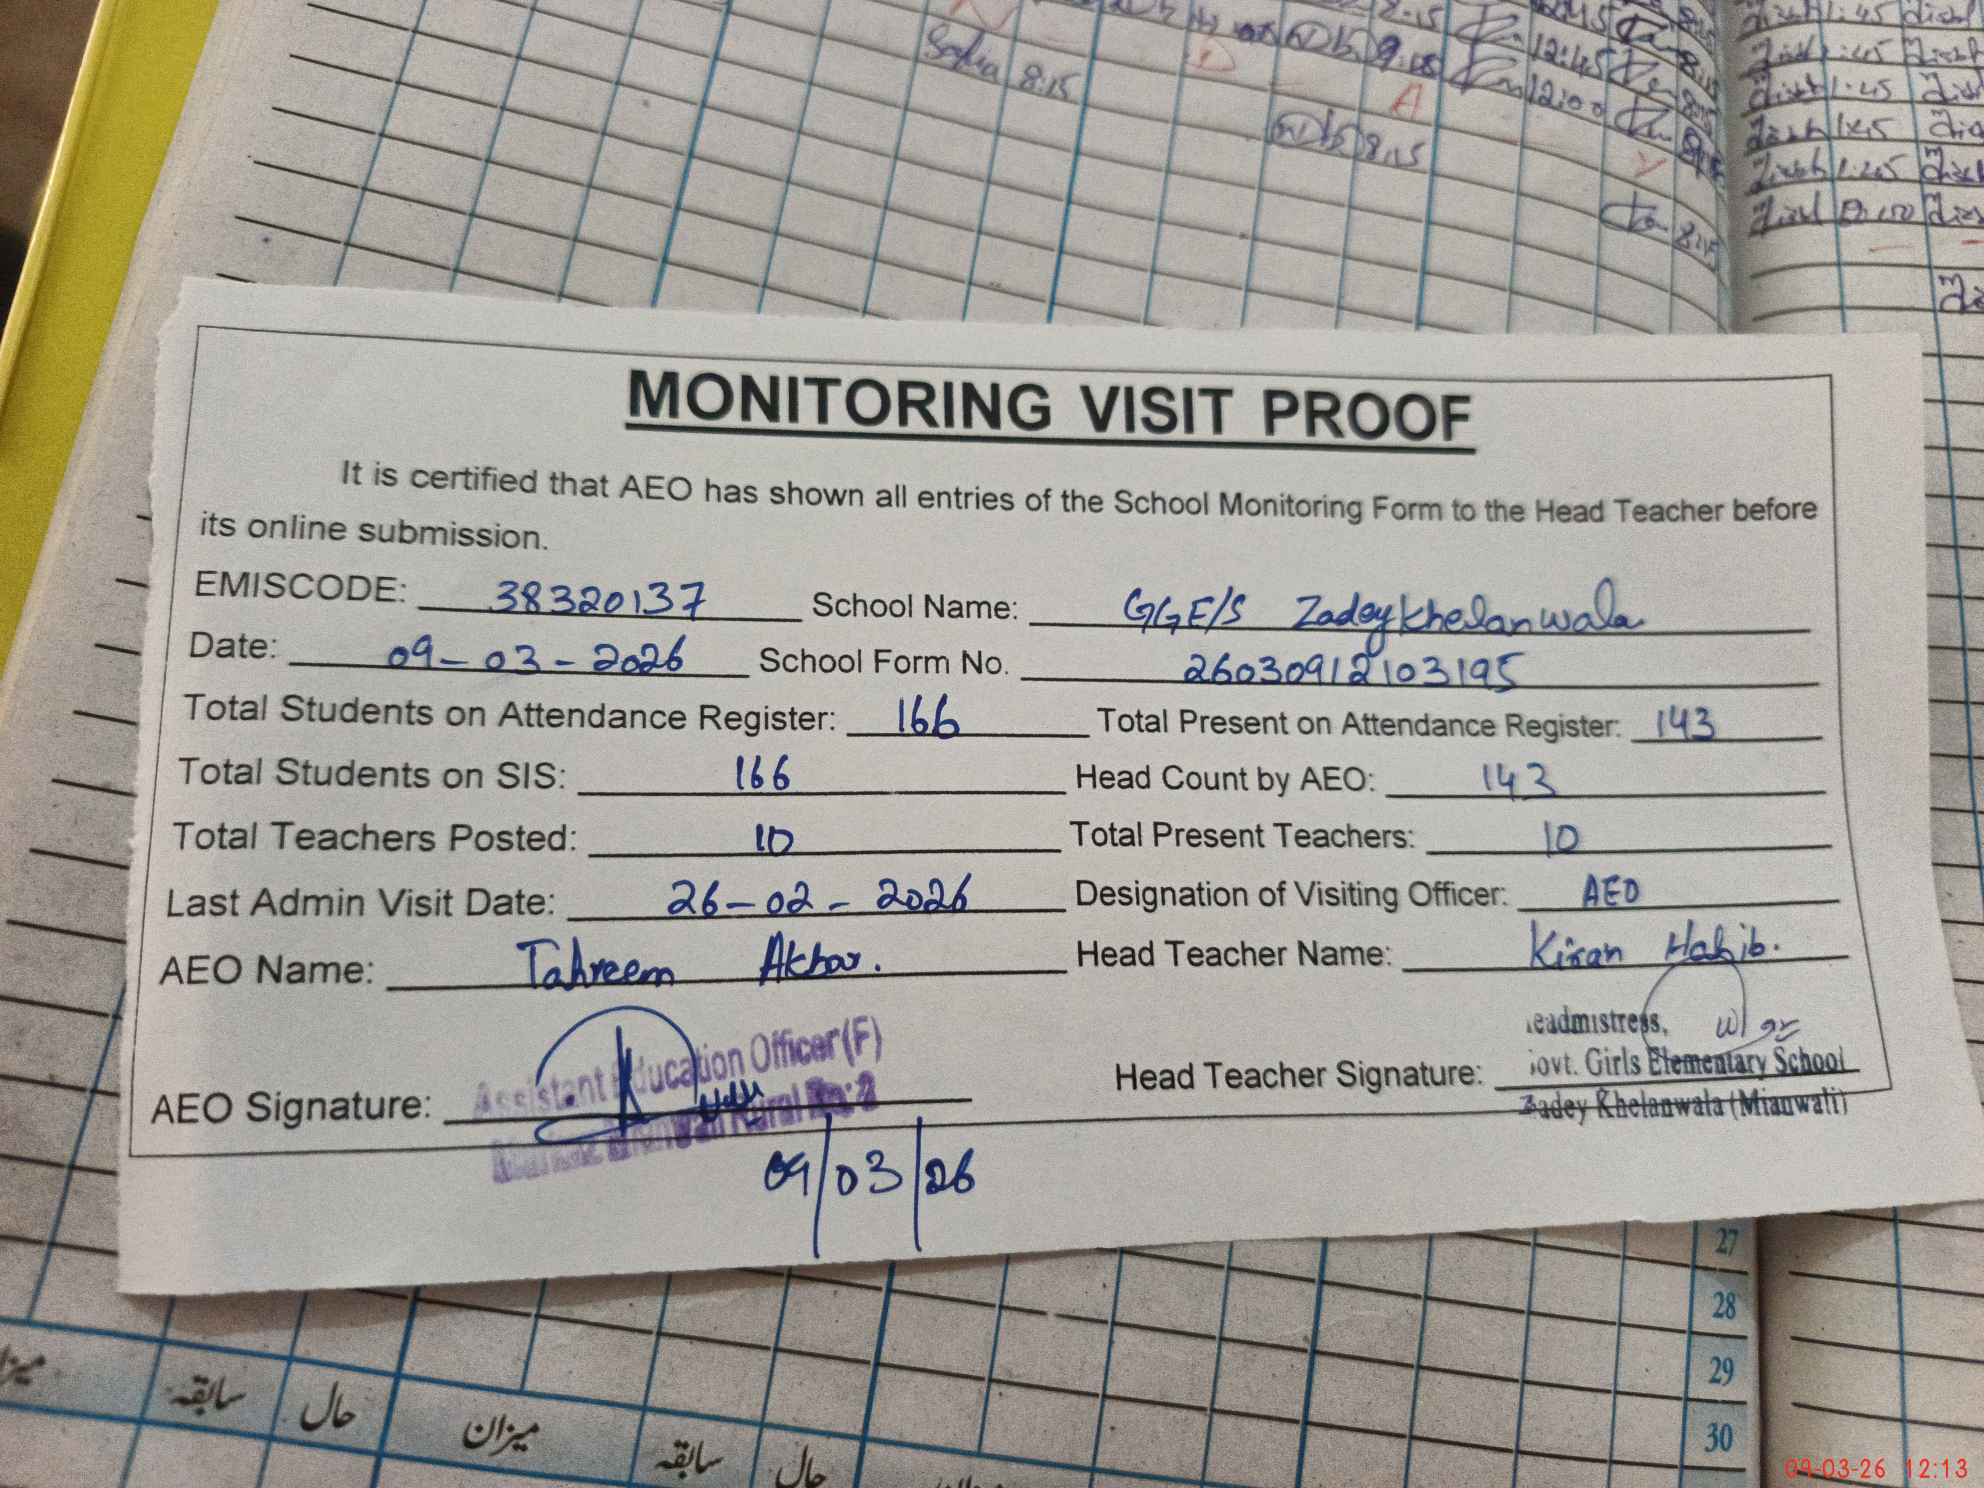 Sofia 8:15
8:15
12:45
9:45
12:00
A
8:15
8:15
1:45
1:45
1:45
MONITORING VISIT PROOF
It is certified that AEO has shown all entries of the School Monitoring Form to the Head Teacher before
its online submission.
EMISCODE: 38320137 School Name: GGE/S Zadeykhelanwala
Date: 09-03-2026 School Form No. 26030912103195
Total Students on Attendance Register: 166 Total Present on Attendance Register: 143
Total Students on SIS: 166 Head Count by AEO: 143
Total Teachers Posted: 10 Total Present Teachers: 10
Last Admin Visit Date: 26-02-2026 Designation of Visiting Officer: AEO
AEO Name: Tahreem Akbar. Head Teacher Name: Kiran Habib.
AEO Signature: Assistant Education Officer (F)
Rural No: 2
09/03/26
Head Teacher Signature: eadmistress,
ovt. Girls Elementary School
Zadey Khelanwala (Mianwali)
27
28
29
30
میزان سابقہ حال میزان سابقہ حال
09-03-26 12:13